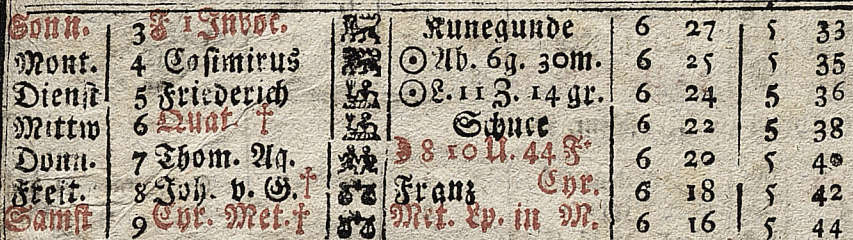 Sonn. 3 F 1 Invoc. Kunegunde 6 27 5 33
Mont. 4 Casimirus ☉ Ab. 6g. 30m. 6 25 5 35
Dienst 5 Friederich ☉ L. 11 Z. 14 gr. 6 24 5 36
Mittw 6 Quat † Schnee 6 22 5 38
Donn. 7 Thom. Aq. 8 10 U. 44 6 20 5 40
Freit. 8 Joh. v. G. † Franz Cyr. 6 18 5 42
Samst 9 Cyr. Met. † Met. Ep. in M. 6 16 5 44